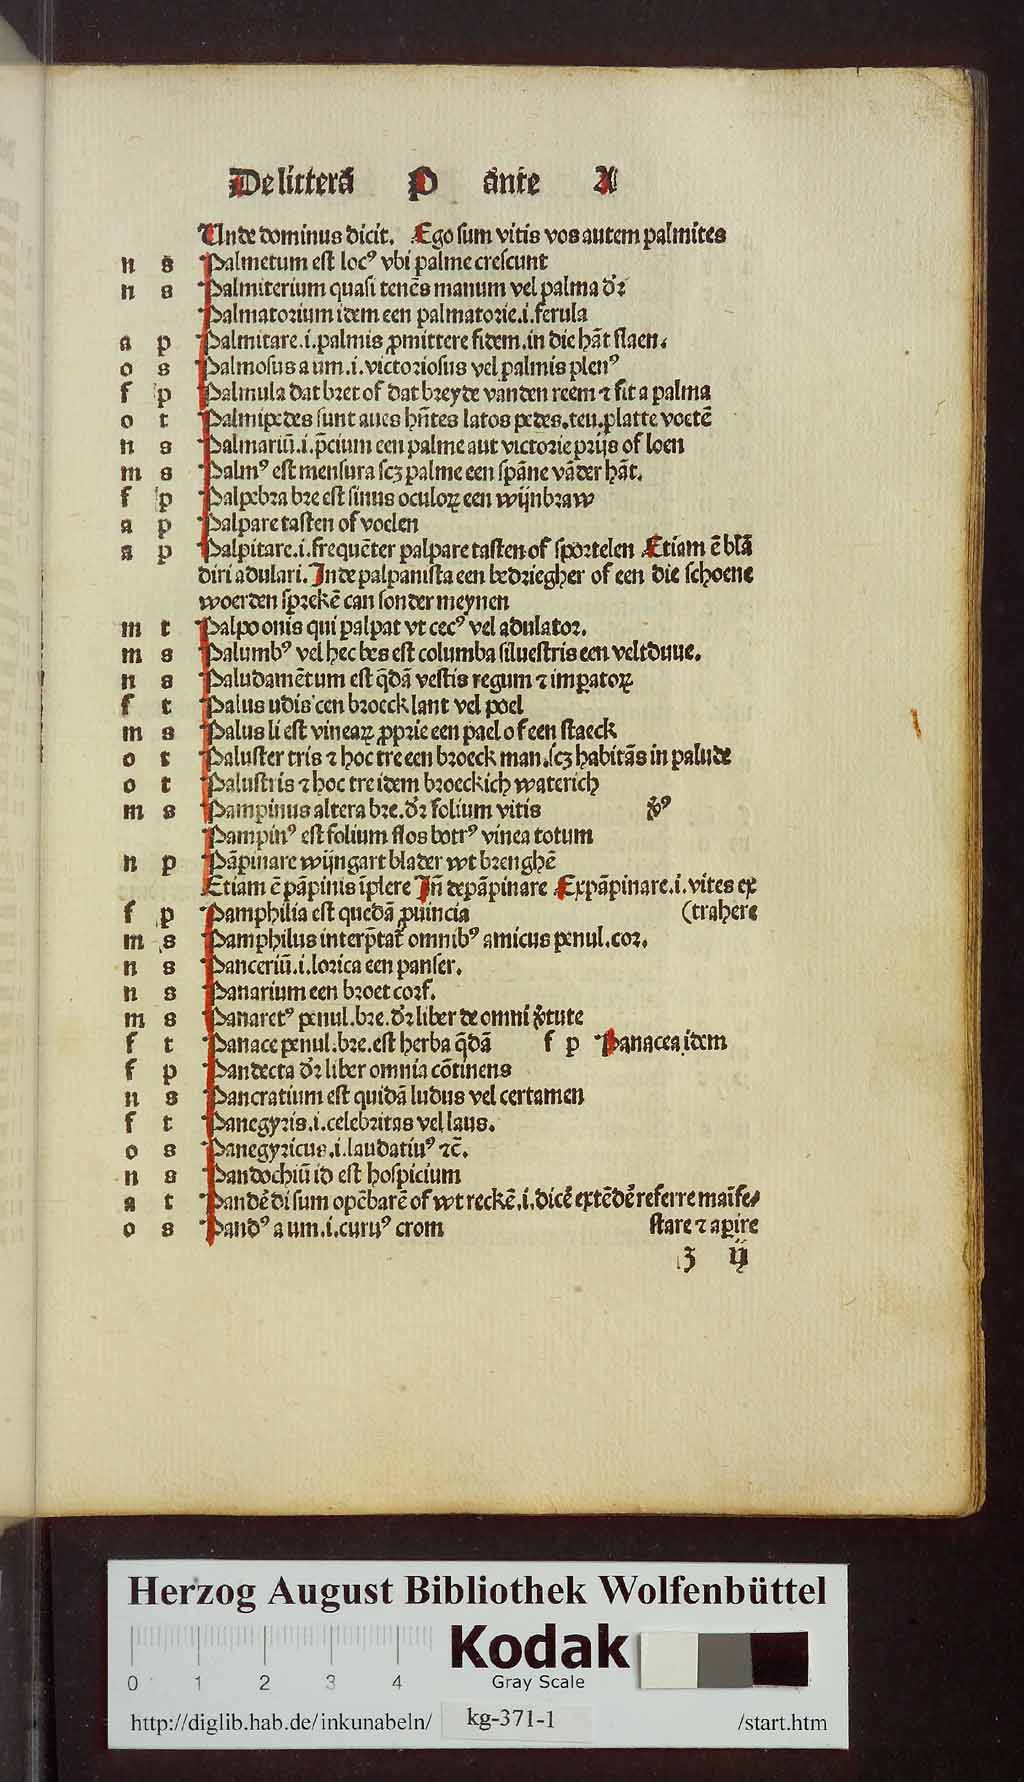 De litterā P ante A
Unde dominus dicit. Ego sum vitis vos autem palmites
n s Palmetum est locꝰ vbi palme crescunt
n s Palmiterium quasi tenēs manum vel palma dr̄
Palmatorium idem een palmatorie.i.ferula
a p Palmitare.i.palmis ꝓmittere fidem.in die hāt slaen.
o s Palmosus a um.i.victoriosus vel palmis plenꝰ
f p Palmula dat bret of dat breyde vanden reem ⁊ fit a palma
o t Palmipedes sunt aues hn̄tes latos pedes.teu.platte voetē
n s Palmariū.i.p̄cium een palme aut victorie prijs of loen
m s Palmꝰ est mensura scꝫ palme een spāne vāder hāt.
f p Palpebra bre est sinus oculoꝝ een wijnbraw
a p Palpare tasten of voelen
a p Palpitare.i.frequēter palpare tasten of sportelen Etiam ē blā
diri adulari. Inde palpanista een bedriegher of een die schoene
woerden sprekē can sonder meynen
m t Palpo onis qui palpat vt cecꝰ vel adulator.
m s Palumbꝰ vel hec bes est columba siluestris een veltduue.
n s Paludamētum est q̄dā vestis regum ⁊ imꝑatoꝝ
f t Palus udis een broeck lant vel poel
m s Palus li est vineaꝝ ꝓprie een pael of een staeck
o t Paluster tris ⁊ hoc tre een broeck man.scꝫ habitās in palude
o t Palustris ⁊ hoc tre idem broeckich waterich
m s Pampinus altera bre.dr̄ folium vitis v̾ꝰ
Pampinꝰ est folium flos botrꝰ vinea totum
n p Pāpinare wijngart blader wt brenghē
Etiam ē pāpinis īplere Jn̄ depāpinare Expāpinare.i.vites ex
f p Pamphilia est quedā ꝓuincia (trahere
m s Pamphilus interp̄tat̄ omnibꝰ amicus penul.cor.
n s Panceriū.i.lorica een panser.
n s Panarium een broet corf.
m s Panaretꝰ penul.bre.dr̄ liber de omni v̾tute
f t Panace penul.bre.est herba q̄dā f p Panacea idem
f p Pandecta dr̄ liber omnia cōtinens
n s Pancratium est quidā ludus vel certamen
f t Panegyris.i.celebritas vel laus.
o s Panegyricus.i.laudatiuꝰ ⁊c̄.
n s Pandochiū id est hospicium
a t Pande᷑ di sum opēbarē of wt reckē.i.dice᷑ extēde᷑ referre maīfe⸗
o s Pandꝰ a um.i.curuꝰ crom stare ⁊ aꝑire
z ij
Herzog August Bibliothek Wolfenbüttel
Kodak
Gray Scale
0 1 2 3 4
http://diglib.hab.de/inkunabeln/ kg-371-1 /start.htm